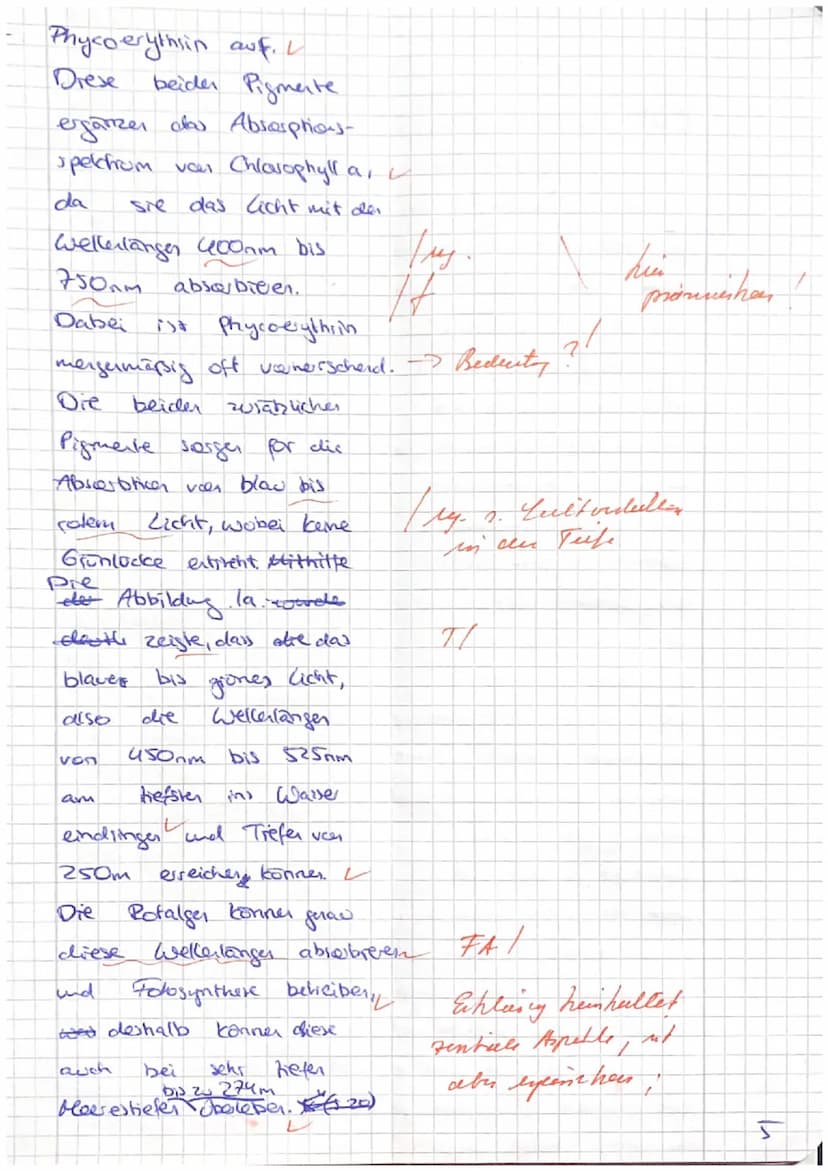 Phycoerythrin auf. ✓
Diese beiden Pigmente
ergänzen das Absorptions-
spektrum von Chlorophyll a, ✓
da sie das Licht mit den
Wellenlängen 400nm bis
750nm absorbieren.
Dabei ist Phycoerythrin
mengenmäßig oft vorherrschend. → Bedeutung?!
Die beiden zusätzlichen
Pigmente sorgen für die
Absorbtion von blau bis
rotem Licht, wobei keine
in der Tiefe
Grünlücke entsteht. Mithilfe
Die
Abbildung 1a wurde
zeigte, dass das T/
blaues bis grünes Licht,
also die Wellenlängen
von 450nm bis 525nm
am tiefsten ins Wasser
eindringen ✓ und Tiefen von
250m erreichen können. ✓
Die Rotalgen können genau
diese Wellenlängen absorbieren FA/
und Fotosynthese betreiben, ✓
Erklärung beinhaltet
deshalb können diese
zentrale Aspekte, ist
auch bei sehr tiefen
aber
bis zu 274m
Meerestiefen überleben. ✓
5